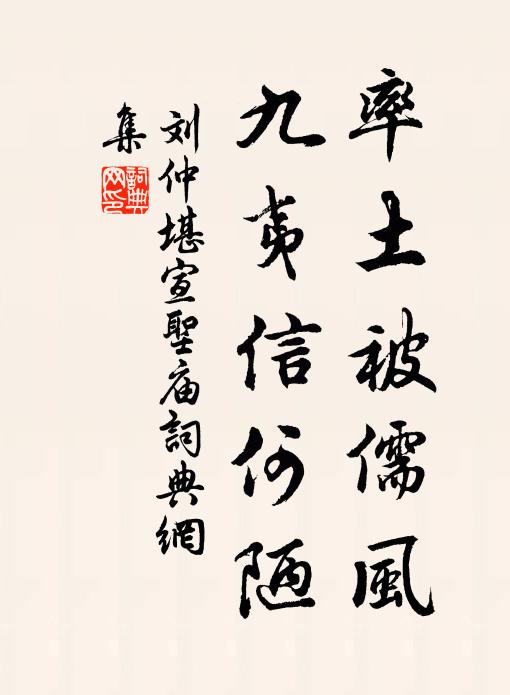 率土被儒風
九夷信何陋
刘仲堪宣聖庙詞典網
集
詞典
网印